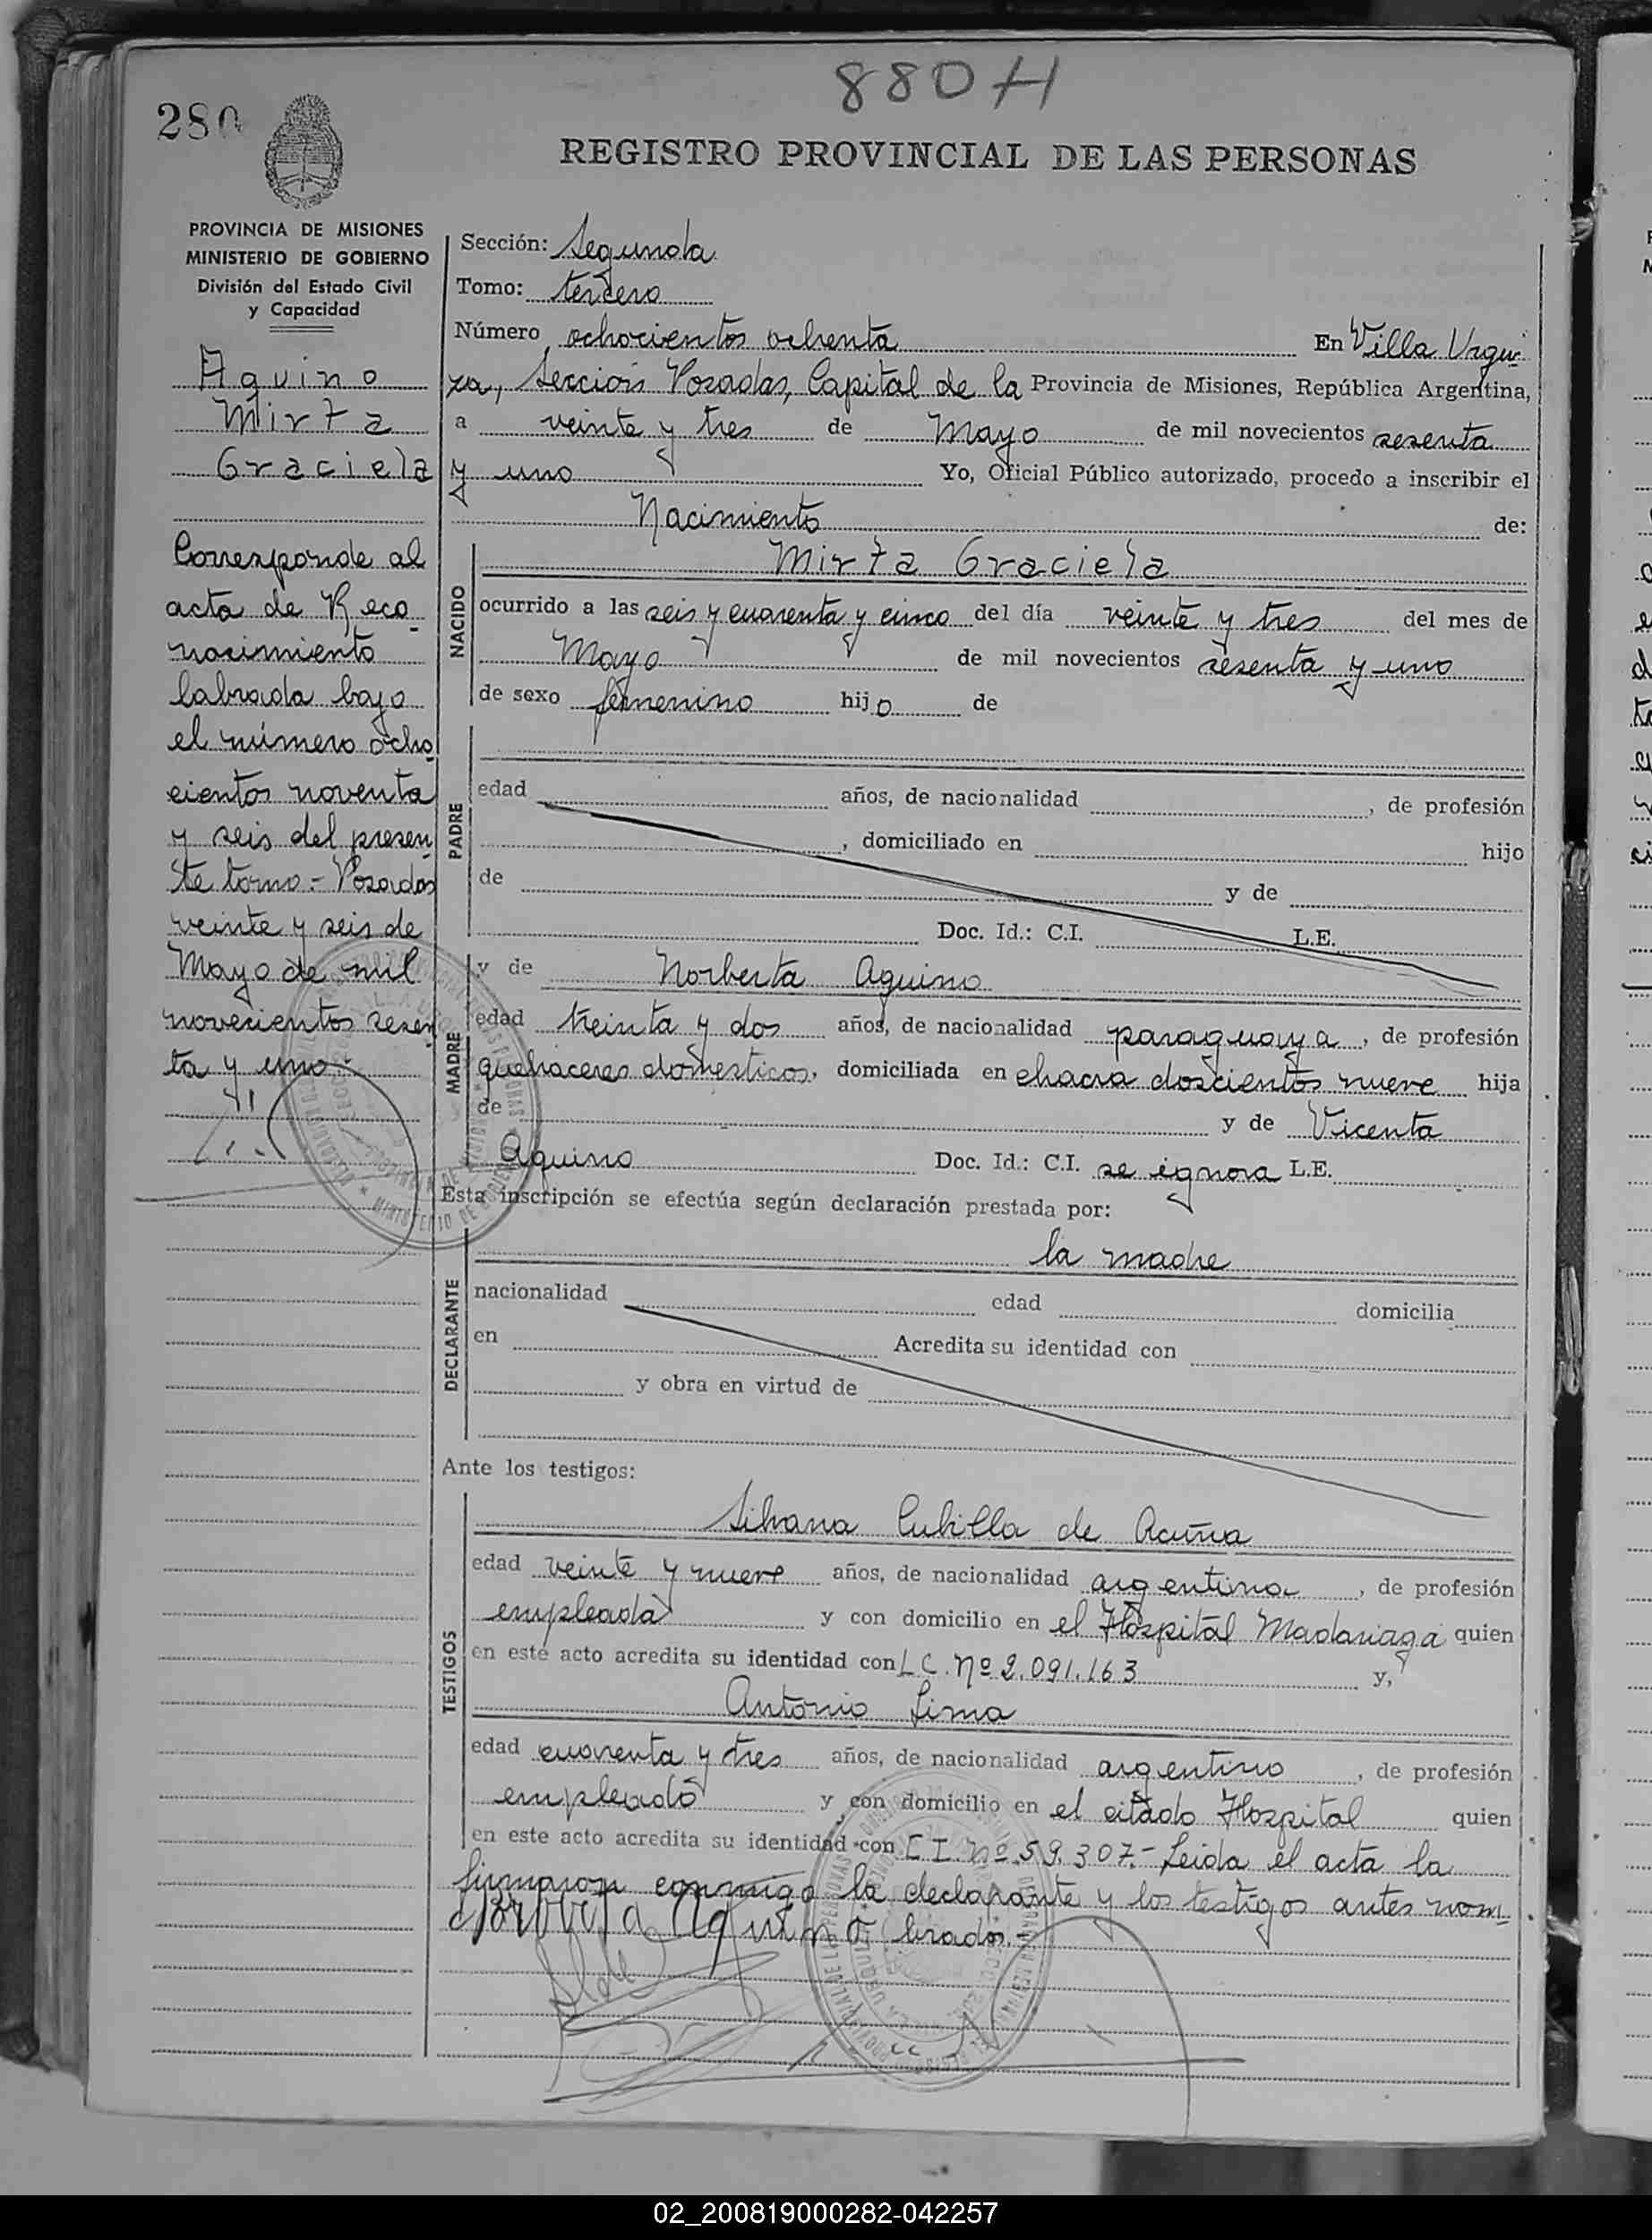 880 H
280
REGISTRO PROVINCIAL DE LAS PERSONAS
PROVINCIA DE MISIONES
MINISTERIO DE GOBIERNO
División del Estado Civil
y Capacidad
Aquino
Mirta
Graciela
Corresponde al
acta de Reco
nocimiento
labrada bajo
el número ocho
cientos noventa
y seis del presen
te tomo.- Posadas
veinte y seis de
Mayo de mil
novecientos sesen
ta y uno.-
Sección: Segunda
Tomo: tercero
Número ochocientos ochenta En Villa Urqui
za, Sección Posadas, Capital de la Provincia de Misiones, República Argentina,
a veinte y tres de Mayo de mil novecientos sesenta
y uno Yo, Oficial Público autorizado, procedo a inscribir el
Nacimiento de:
NACIDO
Mirta Graciela
ocurrido a las seis y cuarenta y cinco del día veinte y tres del mes de
Mayo de mil novecientos sesenta y uno
de sexo femenino hijo de
PADRE
edad años, de nacionalidad , de profesión
, domiciliado en hijo
de y de
Doc. Id.: C.I. L.E.
MADRE
y de Norberta Aquino
edad treinta y dos años, de nacionalidad paraguaya, de profesión
quehaceres domesticos, domiciliada en chacra doscientos nueve hija
de y de Vicenta
Aquino Doc. Id.: C.I. se ignora L.E.
Esta inscripción se efectúa según declaración prestada por:
DECLARANTE
la madre
nacionalidad edad domicilia
en Acredita su identidad con
y obra en virtud de
Ante los testigos:
TESTIGOS
Silvana Cubilla de Acuña
edad veinte y nueve años, de nacionalidad argentina, de profesión
empleada y con domicilio en el Hospital Madariaga quien
en este acto acredita su identidad con L C. Nº 2.091.163 y,
Antonio Lima
edad cuarenta y tres años, de nacionalidad argentino, de profesión
empleado y con domicilio en el citado Hospital quien
en este acto acredita su identidad con C I. Nº 59.307.- Leida el acta la
firmaron conmigo la declarante y los testigos antes nom
Norberta Aquino brados.-
02_200819000282-042257